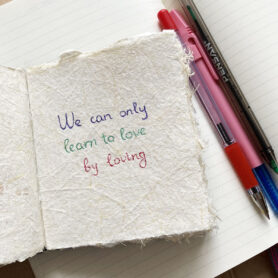 We can only
learn to love
by loving
PENSAN